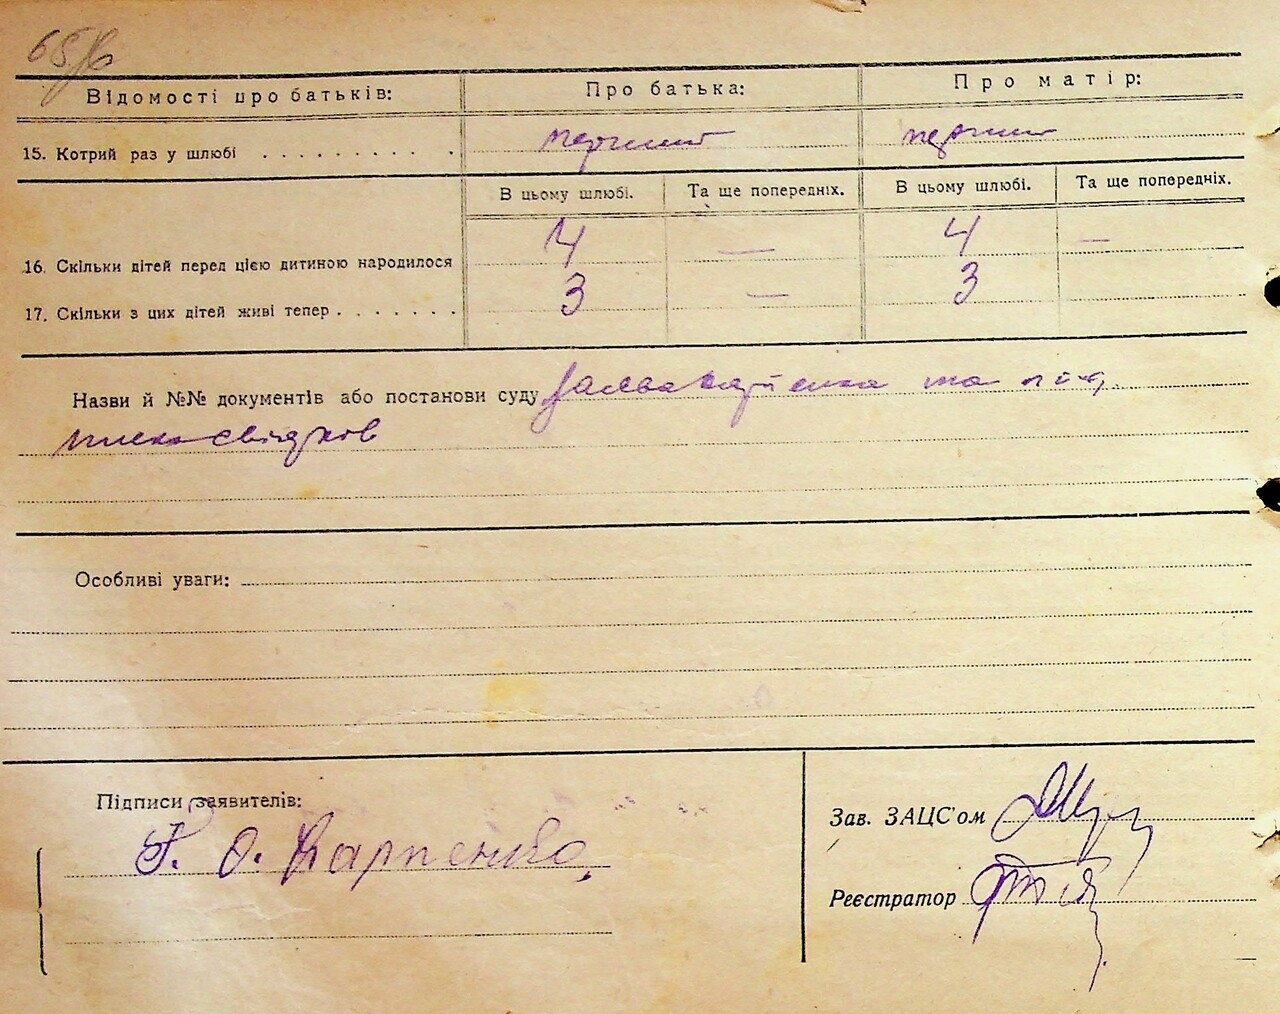 Відомості про батьків: Про батька: Про матір:
15. Котрий раз у шлюбі . . . . . . . . . . перший перший
В цьому шлюбі. Та ще попередніх. В цьому шлюбі. Та ще попередніх.
16. Скільки дітей перед цією дитиною народилося 4 — 4 —
17. Скільки з цих дітей живі тепер . . . . . . . 3 — 3
Назви й №№ документів або постанови суду Заява Карпенка та під-
писи свідков
Особливі уваги:
Підписи заявителів:
Г. О. Карпенко
Зав. ЗАЦС'ом
Реєстратор